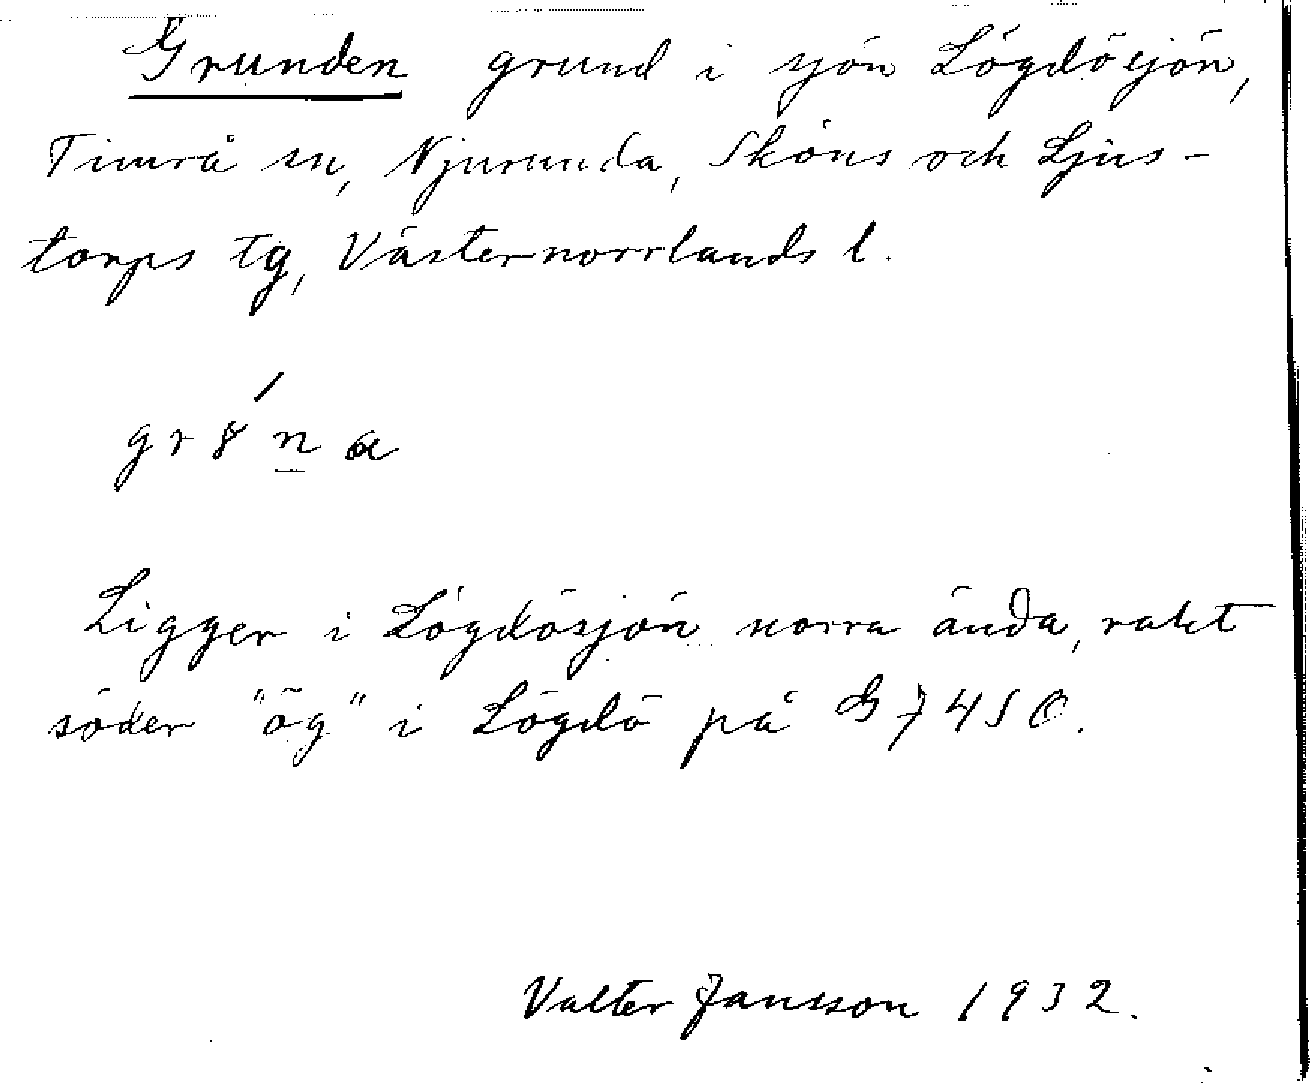 Grunden grund i sjön Lögdösjön,
Timrå sn, Njurunda, Sköns och Ljus-
torps tg, Västernorrlands l.
Ligger i Lögdösjön norra ända, rakt
söder "ög" i Lögdö på G7450.
Valter Jansson 1932.